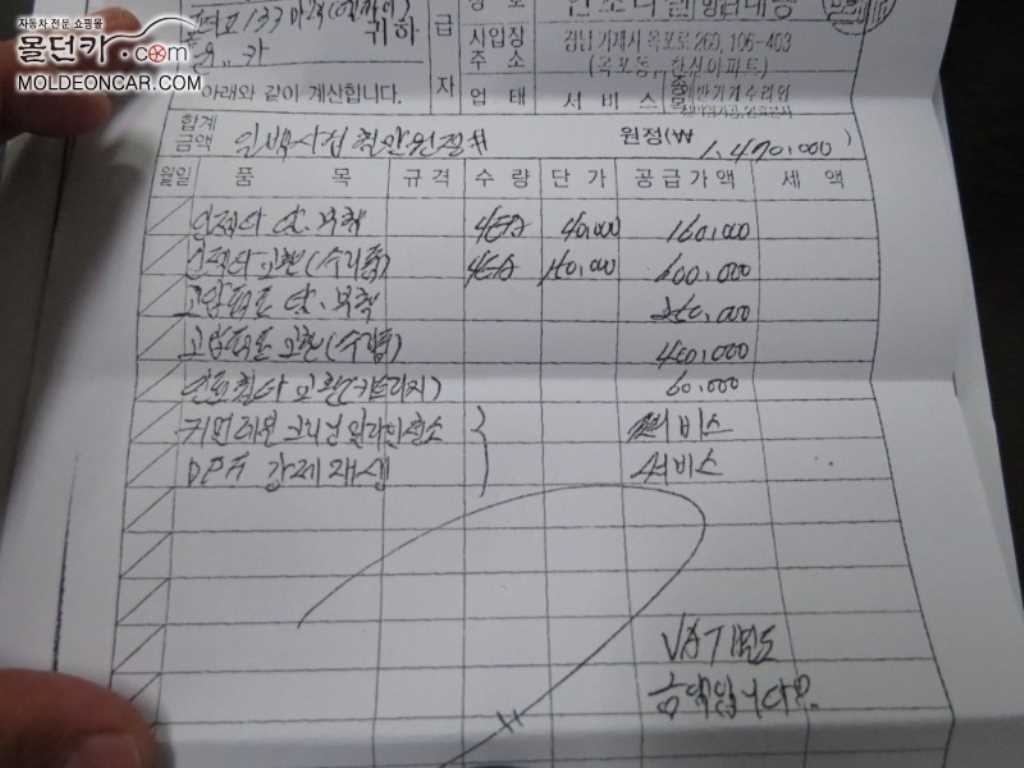 자동차 전문 쇼핑몰
몰던카.com
MOLDEONCAR.COM
귀하
아래와 같이 계산합니다.
급
자
사업장
주 소
경남 거제시 옥포로 260, 106-403
(옥포동,, 한신아파트)
업 태
서 비 스
종목
합계
금액
일백사십칠만원정#
원정(₩ 1,470,000 )
월일 품 목 규 격 수 량 단 가 공 급 가 액 세 액
인젝타 탈.부착 4EA 40,000 160,000
인젝타 교환(수리품) 4EA 600,000
고압펌프 탈.부착
고압펌프 교환(수리품) 400,000
연료휠타 교환(카트리지) 60,000
커먼레일 크리닝 서비스
DPF 강제재생 서비스
VAT별도
금액입니다.